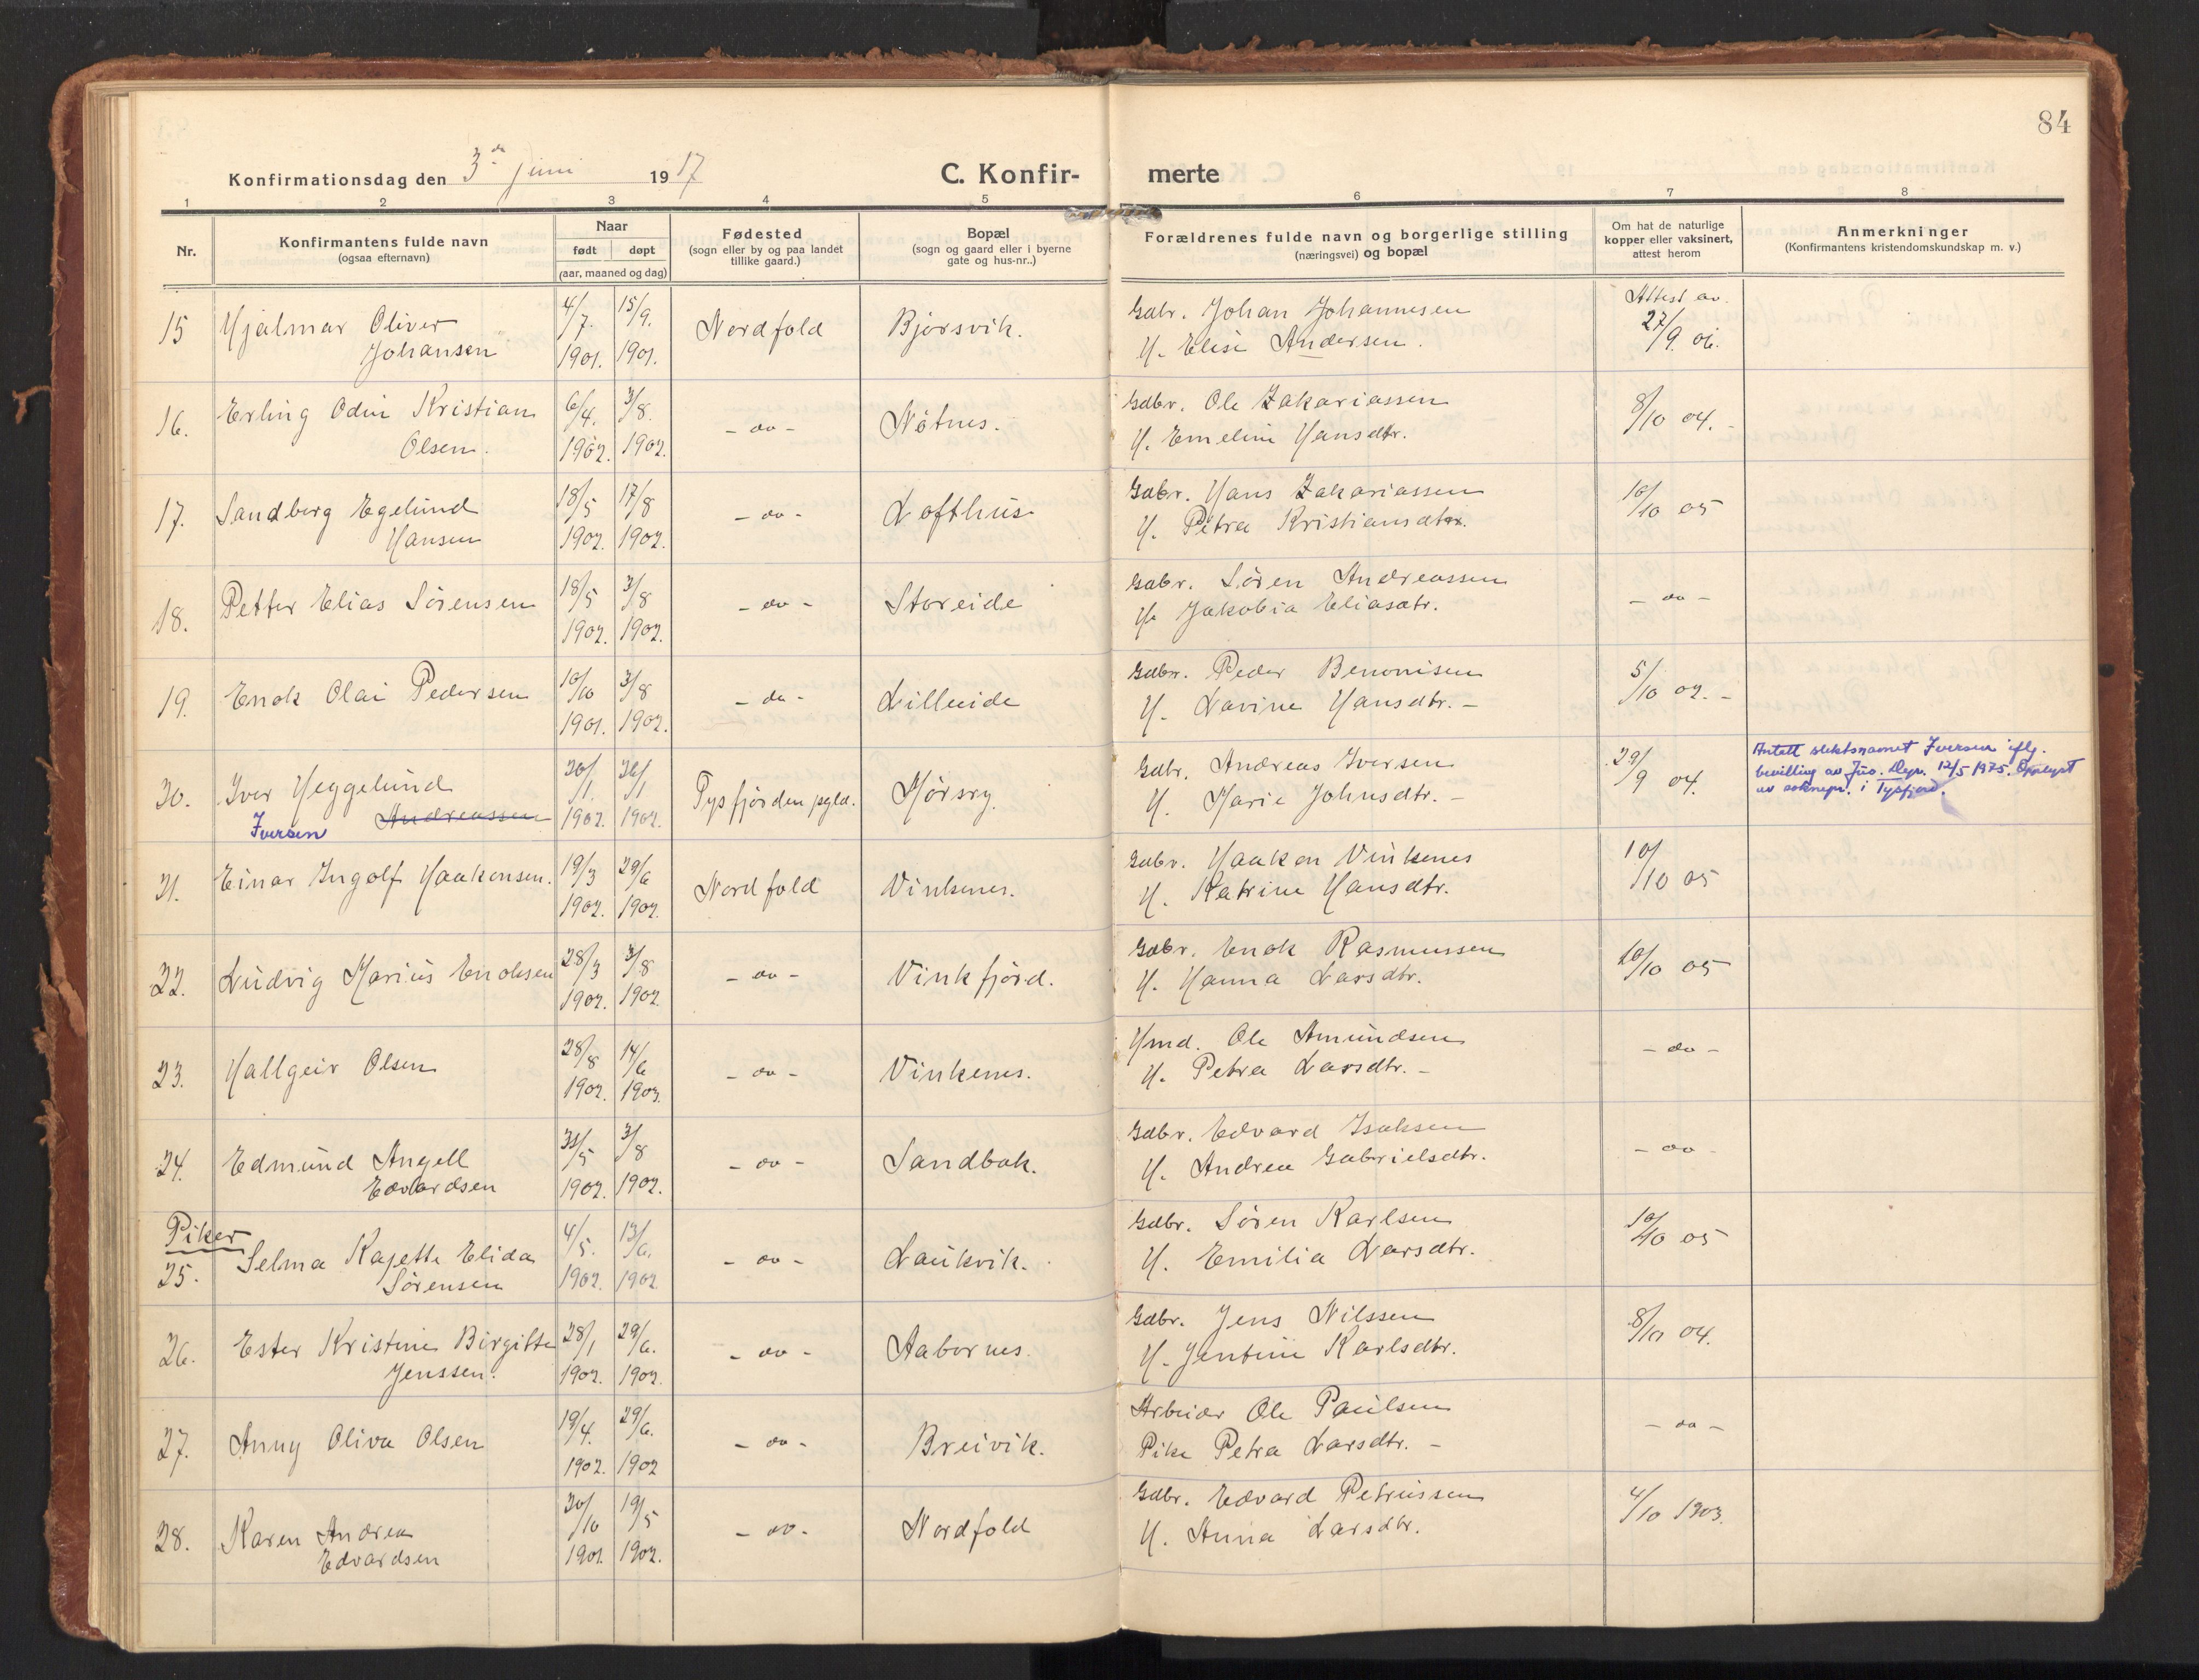 84
Konfirmationsdag den 3de Juni 1917
C. Konfir- merte
1 2 3 4 5 6 7 8
Nr.
Konfirmantens fulde navn
(ogsaa efternavn)
Naar
født døpt
(aar, maaned og dag)
Fødested
(sogn eller by og paa landet
tillike gaard.)
Bopæl
(sogn og gaard eller i byerne
gate og hus-nr..)
Forældrenes fulde navn og borgerlige stilling
(næringsvei) og bopæl
Om hat de naturlige
kopper eller vaksinert,
attest herom
Anmerkninger
(Konfirmantens kristendomskundskap m. v.)
15 Hjalmar Oliver Johansen 4/7. 1901. 15/9. 1901. Nordfold Bjørsvik. Gdbr. Johan Johannesen
H. Elise Andersen. Attest av. 27/9. 06.
16. Erling Odin Kristian Olsen. 6/4. 1902. 3/8. 1902. - do - Nøtnes. Gdbr. Ole Zakariassen
H. Emeline Hansdtr. 8/10 04. -
17. Sandberg Egelund Hansen 18/5 1902. 17/8 1902. - do - Lofthus Gdbr. Hans Zakariassen
H. Petra Kristiansdtr. 10/10 05
18. Petter Elias Sørensen 18/5 1902. 3/8 1902. - do - Storeide Gdbr. Søren Andreassen
H. Jakobia Eliasdtr. - do -
19. Enok Olai Pedersen 10/10 1901. 3/8 1902. - do - Lilleeide Gdbr. Peder Benonisen
H. Lavine Hansdtr. - 5/10 02. -
20. Iver Heggelund Andreassen Iversen 20/1. 1902. 26/1 1902. Tysfjorden pgld. Mørsry. Gdbr. Andreas Iversen
H. Marie Johnsdtr. - 29/9 04.
Antatt slektsnavnet Iversen iflg.
bevilling av Jus. Dep. 12/5 1975. Opplyst
av soknepr. i Tysfjord.
21. Einar Ingolf Haakonsen. 19/3 1902. 29/6 1902. Nordfold Vinkenes. Gdbr. Haakon Vinkenes
H. Katrine Hansdtr. 10/10 05
22. Ludvig Marius Enoksen 28/3 1902. 3/8 1902 - do - Vinkfjord. Gdbr. Enok Rasmussen
H. Hanna Larsdtr. 10/10 05
23. Hallgeir Olsen 28/8 1902. 14/6 1903. - do - Vinkenes. Hmd. Ole Amundsen
H. Petra Larsdtr. - - do -
24. Edmund Angell Edvardsen 31/5 1902. 3/8 1902. - do - Sandbak. Gdbr. Edvard Isaksen
H. Andrea Gabrielsdtr. - do -
Piker
25. Selma Kajette Elida Sørensen 4/5. 1902. 13/6. 1902 - do - Laukvik. Gdbr. Søren Karlsen
H. Emilia Larsdtr. 10/10 05
26. Ester Kristine Birgitte Jenssen. 28/1 1902. 29/6. 1902. - do - Aabornes. Gdbr. Jens Nilssen
H. Jentine Karlsdtr. 8/10 04.
27. Anny Oliva Olsen 19/4. 1902. 29/6. 1902 - do - Breivik. Arbeider Ole Paulsen
Pike Petra Larsdtr. - - do -
28. Karen Andrea Edvardsen 20/10 1901. 19/5 1902. - do - Nordfold Gdbr. Edvard Petrussen
H. Anna Larsdtr. 4/10 1903.